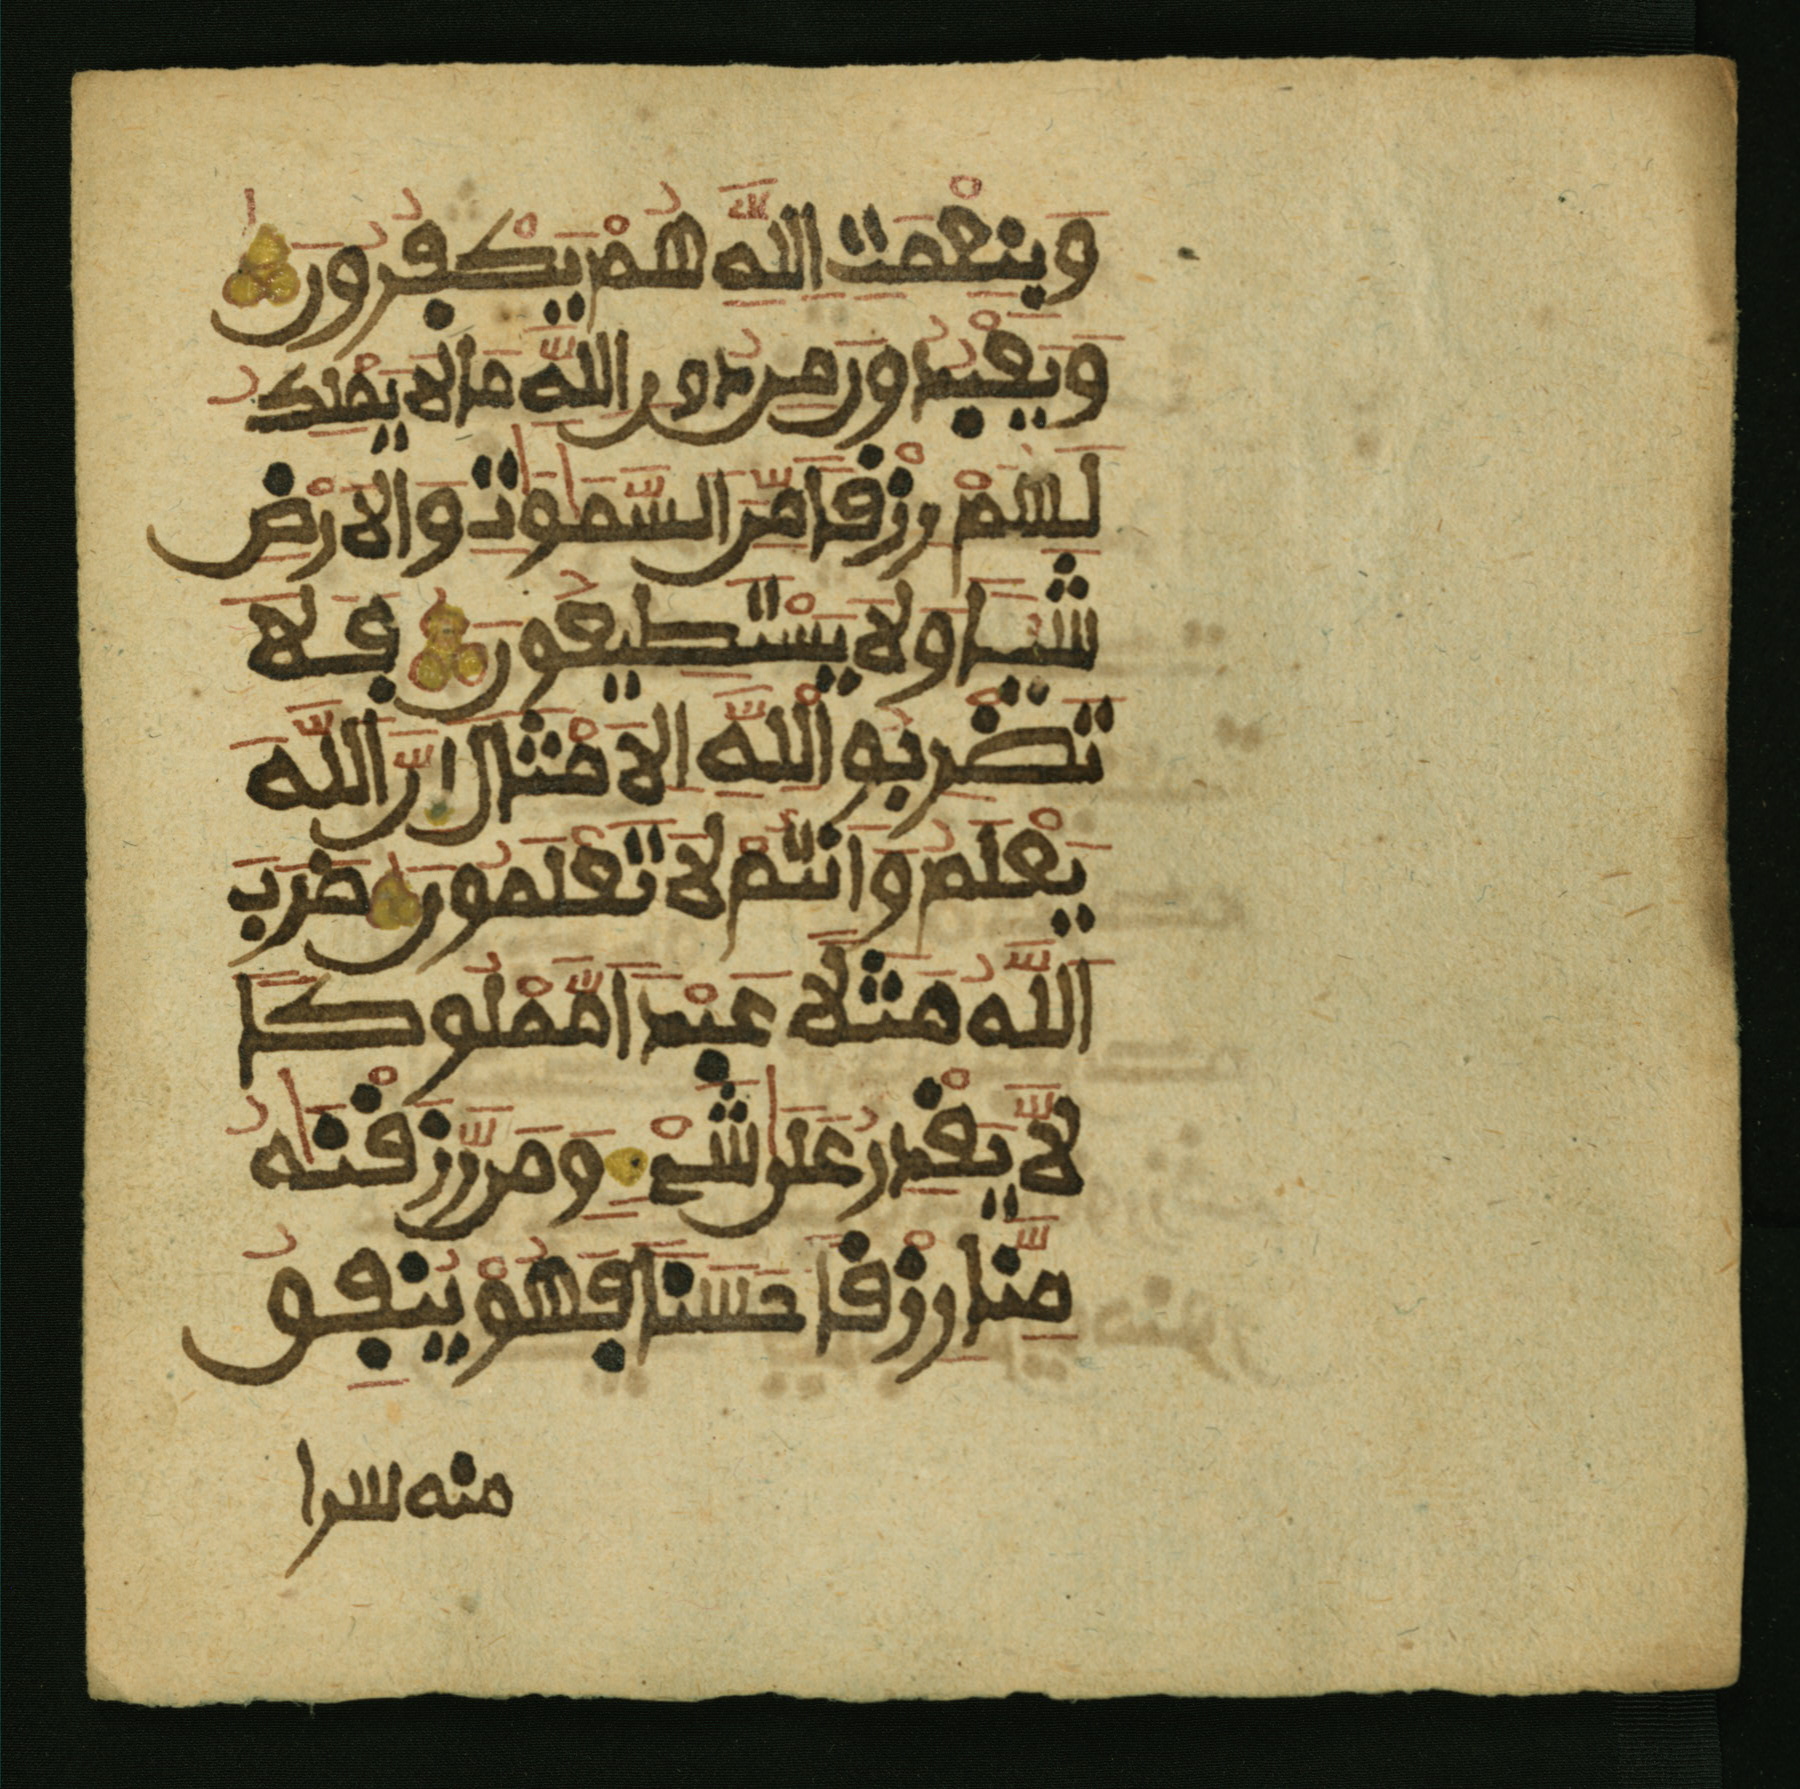 وَبِنِعْمَتِ اللَّهِ هُمْ يَكْفُرُونَ
وَيَعْبُدُونَ مِن دُونِ اللَّهِ مَا لَا يَمْلِكُ
لَهُمْ رِزْقًا مِّنَ السَّمَٰوَٰتِ وَالَارْضِ
شَيْـًٔا وَلَا يَسْتَطِيعُونَ فَلَا
تَضْرِبُوا لِلَّهِ الَامْثَالَ إِنَّ اللَّهَ
يَعْلَمُ وَأَنتُمْ لَا تَعْلَمُونَ ضَرَبَ
اللَّهُ مَثَلًا عَبْدًا مَّمْلُوكًا
لَّا يَقْدِرُ عَلَىٰ شَيْءٍ وَمَن رَّزَقْنَٰهُ
مِنَّا رِزْقًا حَسَنًا فَهُوَ يُنفِقُ
منه سرا